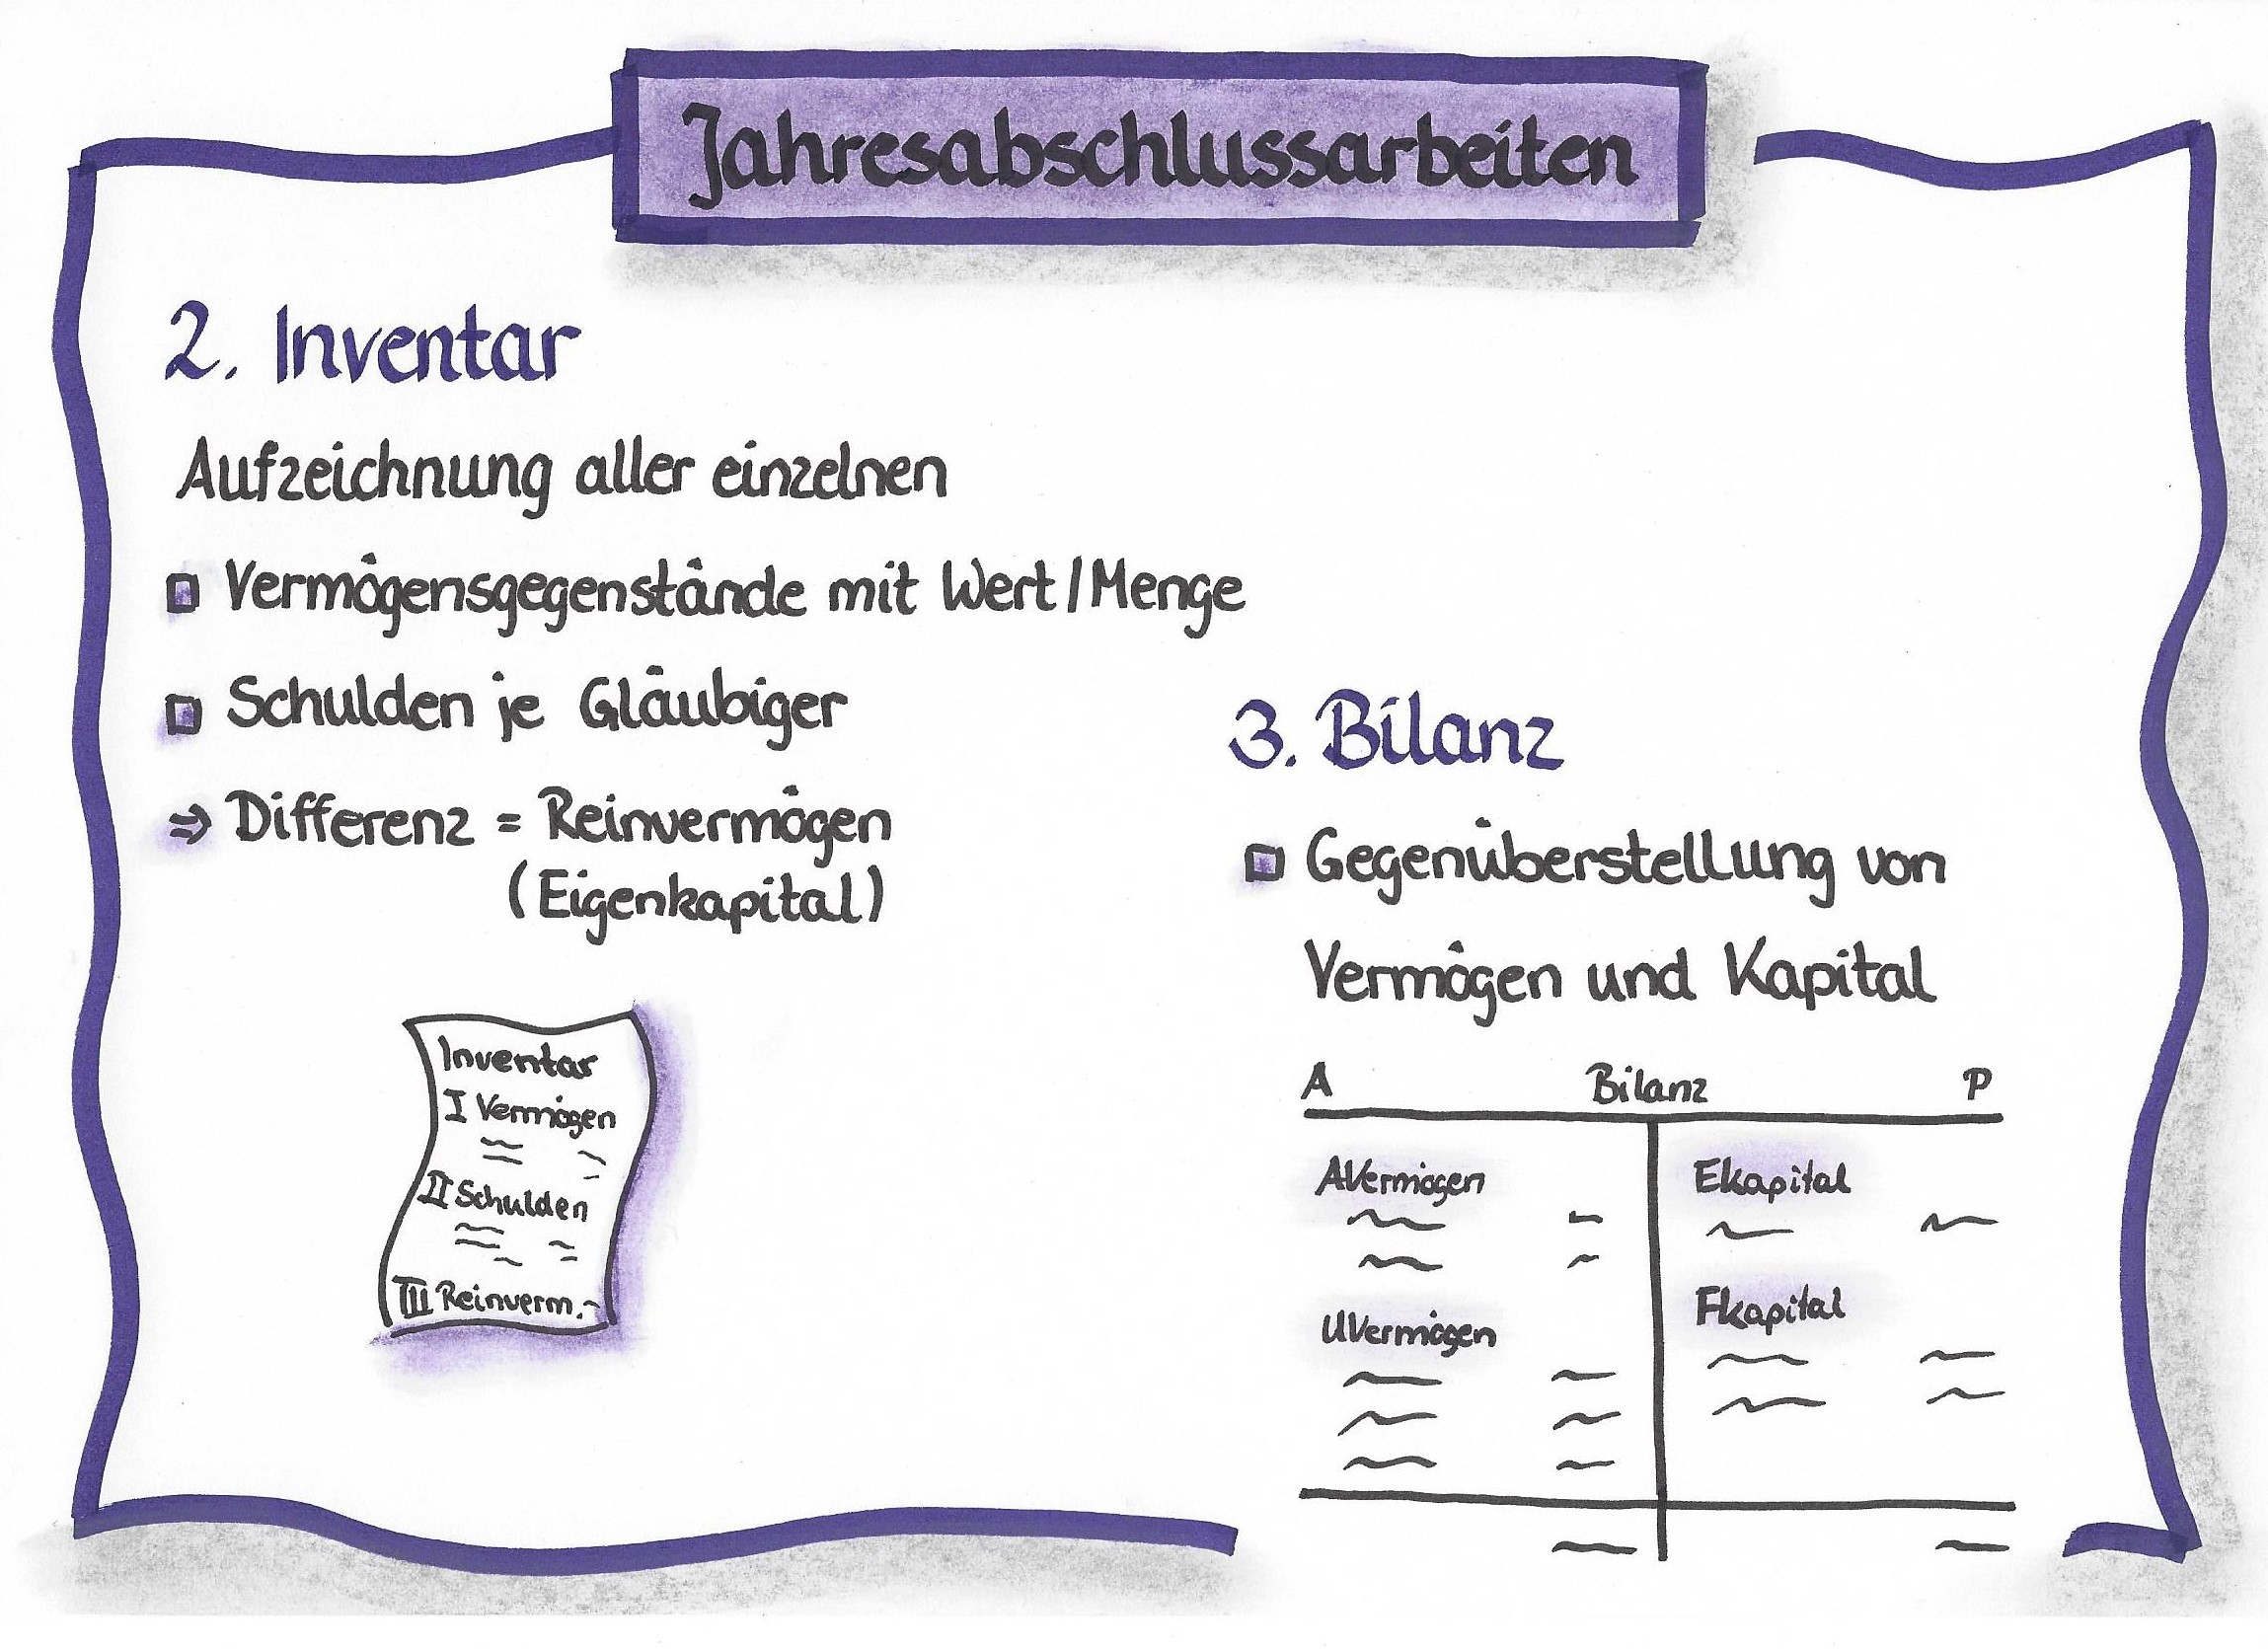 Jahresabschlussarbeiten
2. Inventar
Aufzeichnung aller einzelnen
Vermögensgegenstände mit Wert/Menge
Schulden je Gläubiger
⇒ Differenz = Reinvermögen
(Eigenkapital)
Inventar
I Vermögen
II Schulden
III Reinverm.
3. Bilanz
Gegenüberstellung von
Vermögen und Kapital
A Bilanz P
AVermögen EKapital
UVermögen FKapital